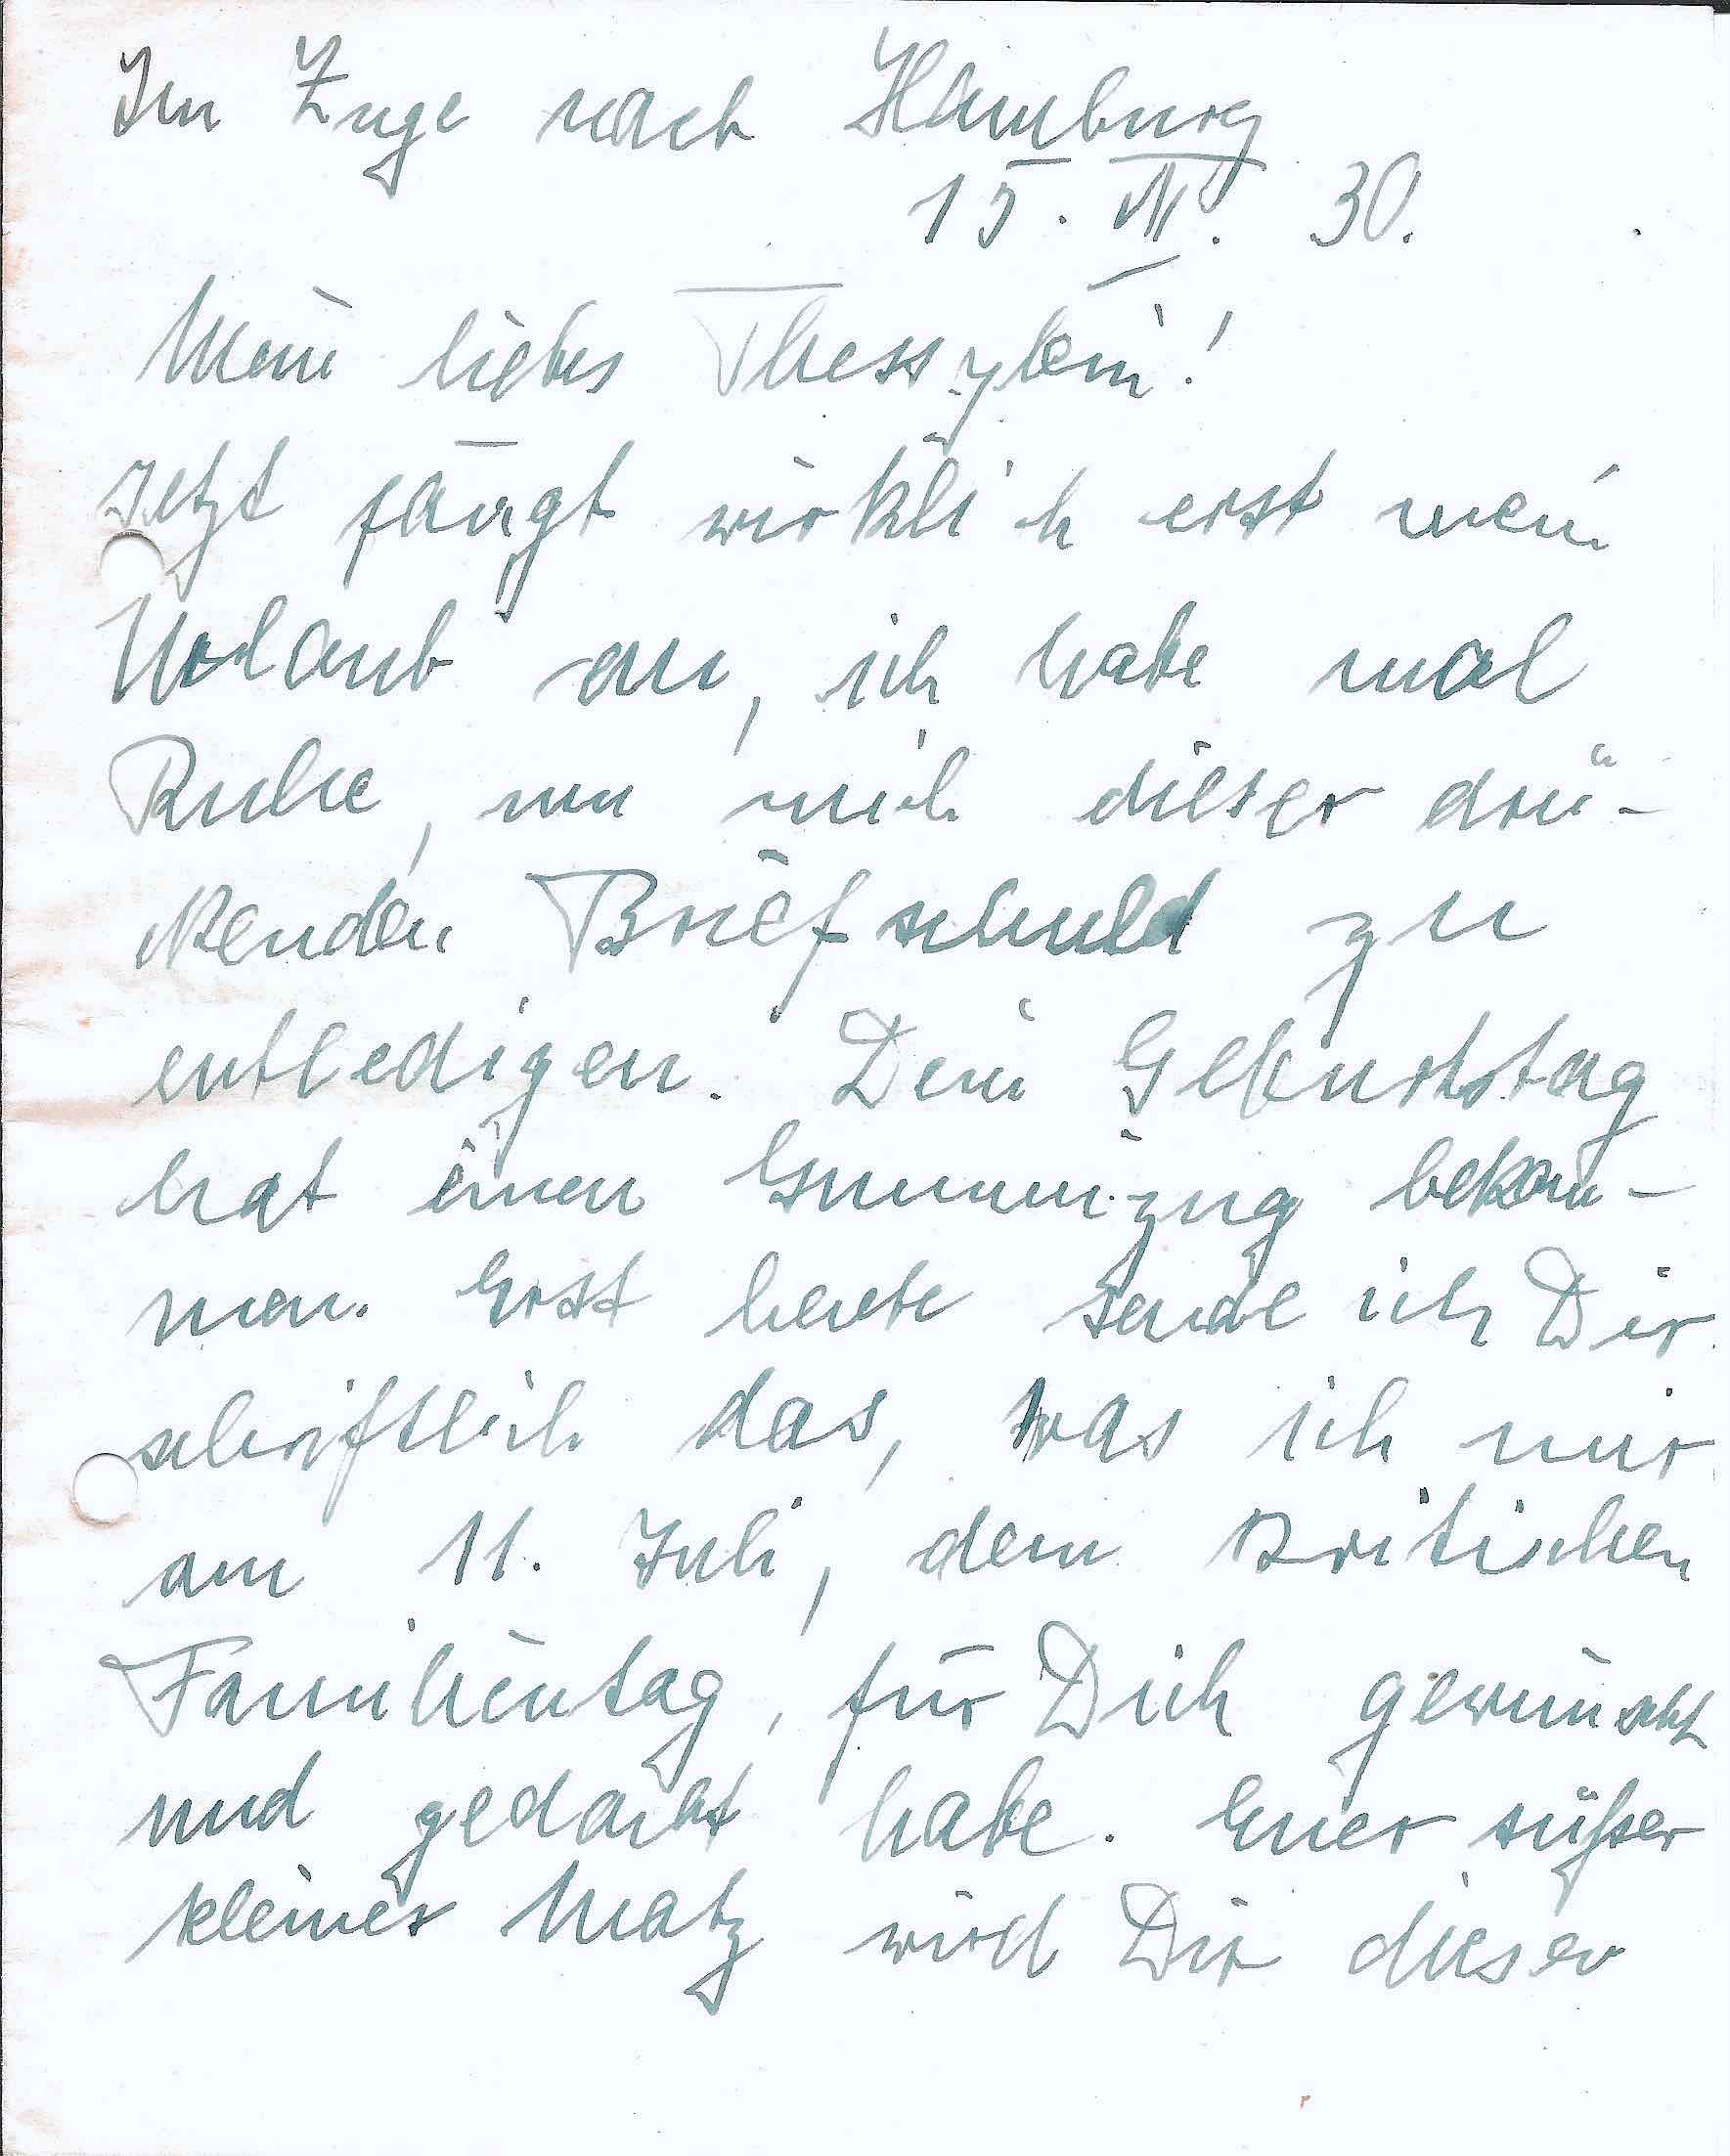 Im Zuge nach Hamburg
15. VII. 30.
Mein liebes Thessylein!
Jetzt fängt wirklich erst mein
Urlaub an, ich habe mal
Ruhe, um mich dieser drü-
ckenden Briefschuld zu
entledigen. Dein Geburtstag
hat einen Gummizug bekom-
men. Erst heute sende ich Dir
schriftlich das, was ich mir
am 11. Juli, dem kritischen
Familientag, für Dich gewünscht
und gedacht habe. Euer süßer
kleiner Matz wird Dir dieser